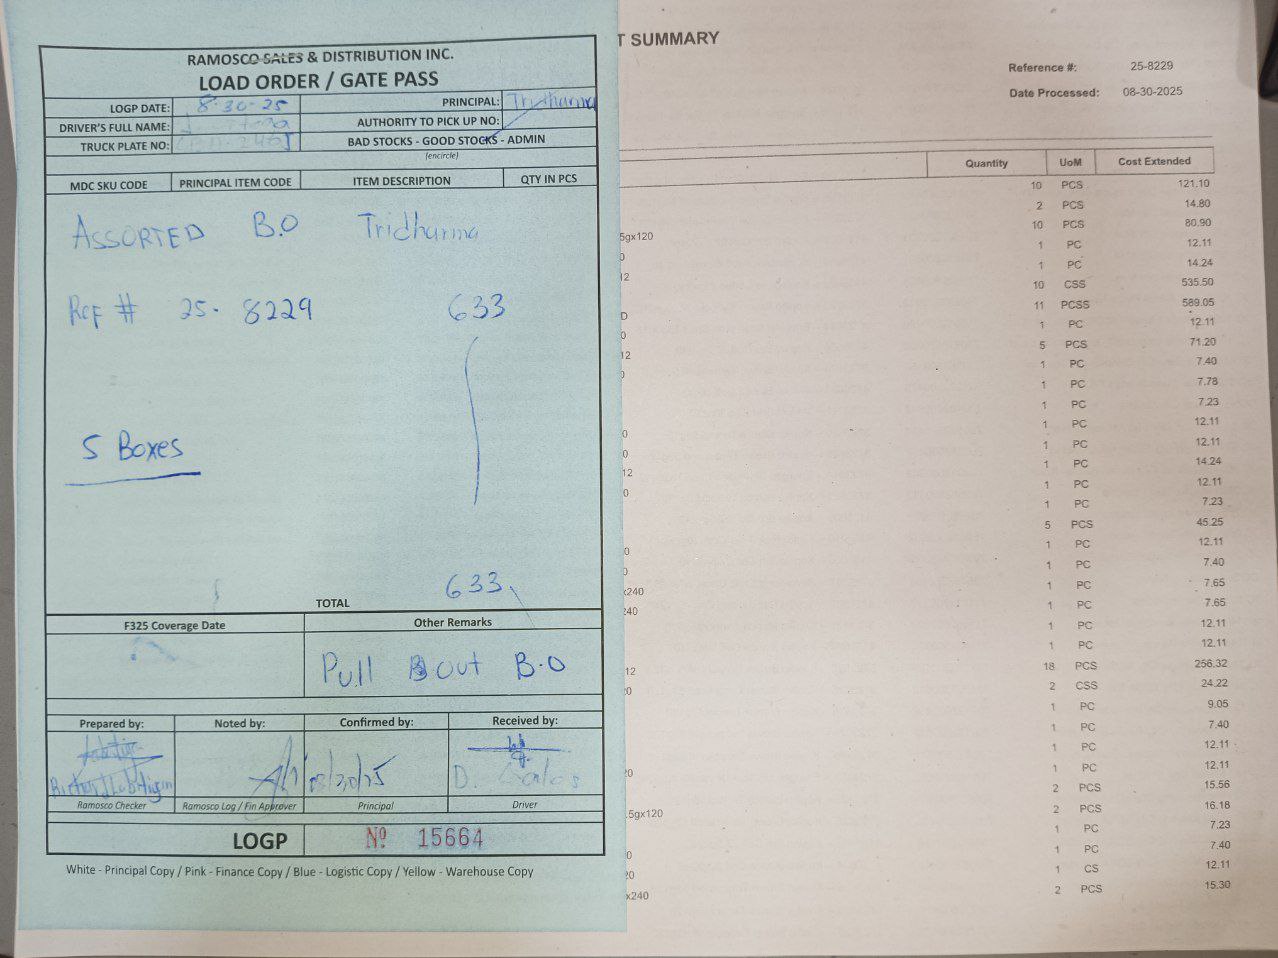 RAMOSCO SALES & DISTRIBUTION INC.
LOAD ORDER / GATE PASS
LOGP DATE: 8-30-25 PRINCIPAL: Tridharma
DRIVER'S FULL NAME: AUTHORITY TO PICK UP NO:
TRUCK PLATE NO: BAD STOCKS - GOOD STOCKS - ADMIN
(encircle)
MDC SKU CODE PRINCIPAL ITEM CODE ITEM DESCRIPTION QTY IN PCS
ASSORTED B.O Tridharma
Ref # 25-8229 633
5 Boxes
633
TOTAL
F325 Coverage Date Other Remarks
Pull Out B.O
Prepared by: Noted by: Confirmed by: Received by:
Ramosco Checker Ramosco Log / Fin Approver Principal Driver
LOGP Nº 15664
White - Principal Copy / Pink - Finance Copy / Blue - Logistic Copy / Yellow - Warehouse Copy
T SUMMARY
Reference #: 25-8229
Date Processed: 08-30-2025
Quantity UoM Cost Extended
10 PCS 121.10
2 PCS 14.80
5gx120 10 PCS 80.90
0 1 PC 12.11
12 1 PC 14.24
10 CSS 535.50
D 11 PCSS 589.05
0 1 PC 12.11
12 5 PCS 71.20
1 PC 7.40
1 PC 7.78
1 PC 7.23
0 1 PC 12.11
0 1 PC 12.11
12 1 PC 14.24
0 1 PC 12.11
1 PC 7.23
5 PCS 45.25
0 1 PC 12.11
1 PC 7.40
x240 1 PC 7.65
240 1 PC 7.65
1 PC 12.11
1 PC 12.11
12 18 PCS 256.32
0 2 CSS 24.22
1 PC 9.05
1 PC 7.40
1 PC 12.11
20 1 PC 12.11
2 PCS 15.56
.5gx120 2 PCS 16.18
1 PC 7.23
0 1 PC 7.40
20 1 CS 12.11
x240 2 PCS 15.30